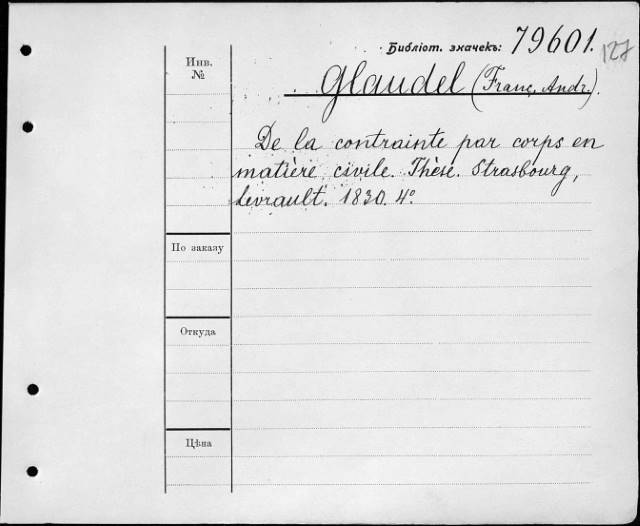 Библіот. значекъ: 79601.
127
Инв.
№
Glaudel (Franç. Andr.).
De la contrainte par corps en
matière civile. Thèse. Strasbourg,
Levrault. 1830. 4°.
По заказу
Откуда
Цѣна